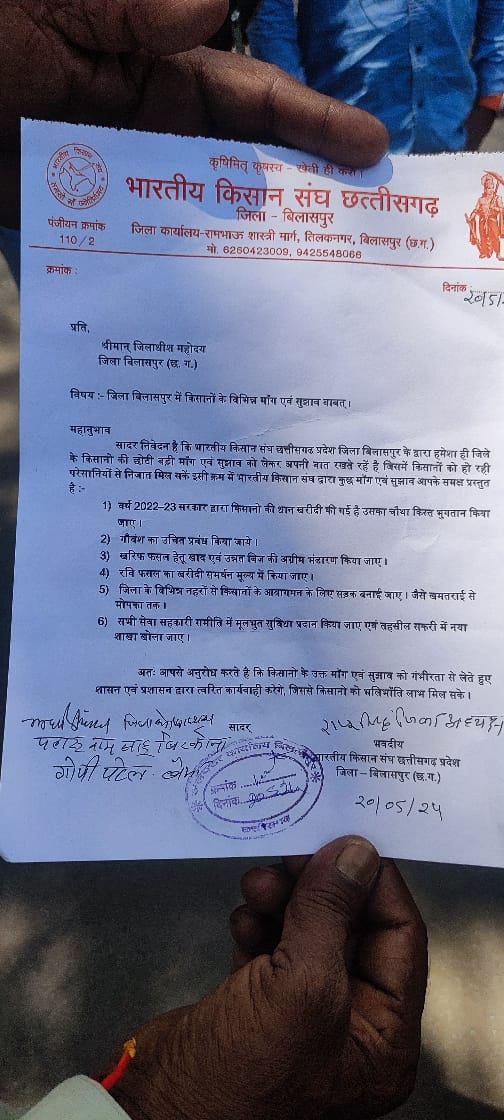 कृषिमित् कृषस्व - खेती ही करो।
भारतीय किसान संघ छत्तीसगढ़
जिला - बिलासपुर
पंजीयन क्रमांक
110/2
जिला कार्यालय-रामभाऊ शास्त्री मार्ग, तिलकनगर, बिलासपुर (छ.ग.)
मो. 6260423009, 9425548066
क्रमांक :
दिनांक
प्रति,
श्रीमान् जिलाधीश महोदय
जिला बिलासपुर (छ. ग.)
विषय :- जिला बिलासपुर में किसानों के विभिन्न माँग एवं सुझाव बाबत्।
महानुभाव
सादर निवेदन है कि भारतीय किसान संघ छत्तीसगढ़ प्रदेश जिला बिलासपुर के द्वारा हमेशा ही जिले
के किसानों की छोटी बड़ी माँग एवं सुझाव को लेकर अपनी बात रखते रहें है जिसमें किसानों को हो रही
परेसानियों से निजात मिल सकें इसी क्रम में भारतीय किसान संघ द्वारा कुछ माँग एवं सुझाव आपके समक्ष प्रस्तुत
है :-
1) वर्ष 2022-23 सरकार द्वारा किसानों की धान खरीदी की गई है उसका चौथा किस्त भुगतान किया
जाए।
2) गौवंश का उचित प्रबंध किया जाये।
3) खरिफ फसल हेतू खाद एवं उन्नत बिज की अग्रीम भंडारण किया जाए।
4) रवि फसल का खरीदी समर्थन मुल्य में किया जाए।
5) जिला के विभिन्न नहरों से किसानों के आवागमन के लिए सड़क बनाई जाए। जैसे खमतराई से
मोपका तक।
6) सभी सेवा सहकारी समीति में मूलभुत सुविधा प्रदान किया जाए एवं तहसील सकरी में नया
शाखा खोला जाए।
अतः आपसे अनुरोध करते है कि किसानों के उक्त माँग एवं सुझाव को गंभीरता से लेते हुए
शासन एवं प्रशासन द्वारा त्वरित कार्यवाही करेंगे, जिससे किसानों को भलिभाँति लाभ मिल सके।
सादर
गोपी पटेल
भवदीय
भारतीय किसान संघ छत्तीसगढ़ प्रदेश
जिला - बिलासपुर (छ.ग.)
क्रमांक
दिनांक
20/05/24